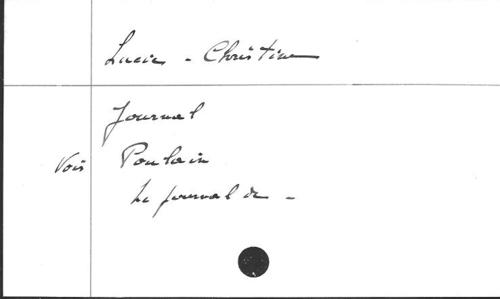 Lucie - Christine
Journal
Vois Poulain
Le journal de -